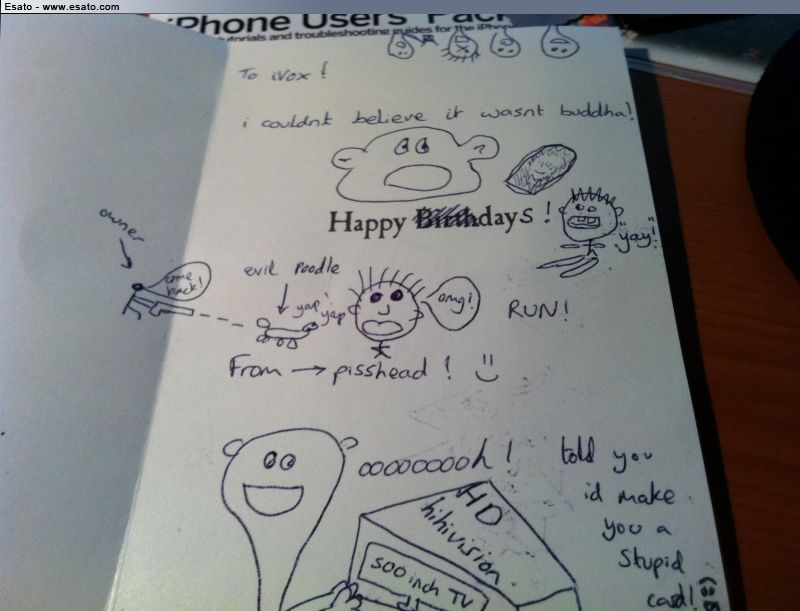 Esato - www.esato.com
iPhone Users' Pack
tutorials and troubleshooting guides for the iPhone
To iVox!
i couldnt believe it wasnt buddha!
Happy Birthdays!
"yay!"
owner
come back!
evil poodle
yap yap
omg!
RUN!
From → pisshead! :)
ooooooooh!
told you
id make
you a
stupid
card!
HD
hihivision
500 inch TV